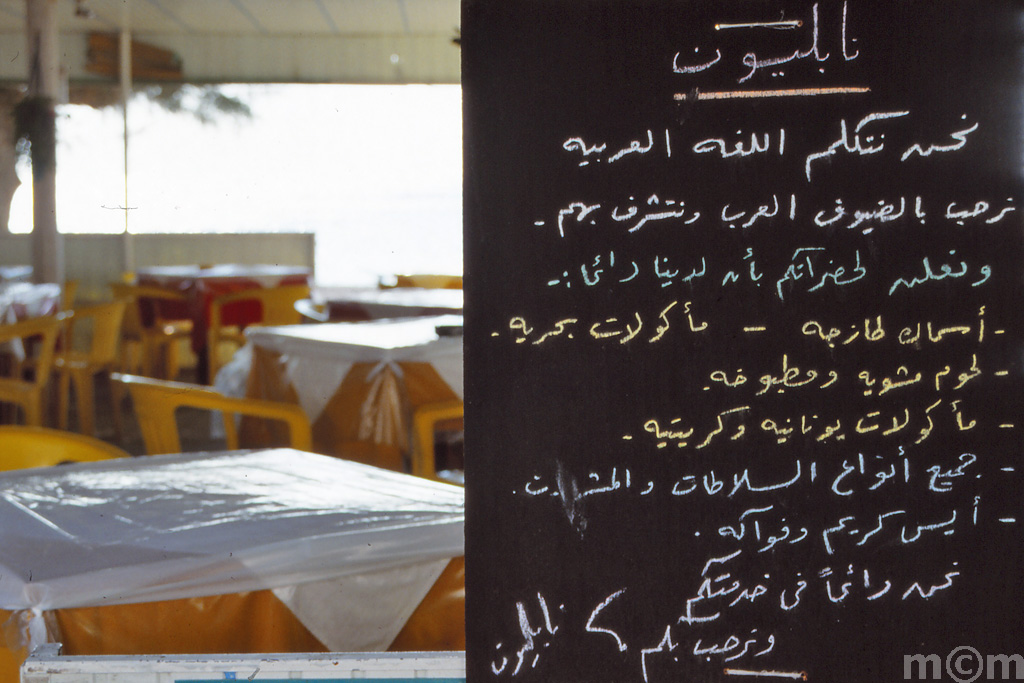 نابليون
نحن نتكلم اللغه العربيه
نرحب بالضيوف العرب ونتشرف بهم.
ونعلن لحضراتكم بأن لدينا دائما:-
- أسماك طازجه - مأكولات بحريه.
- لحوم مشويه ومطبوخه.
- مأكولات يونانيه وكريتيه.
- جميع أنواع السلاطات والمشروبات.
- أيس كريم وفواكه.
نحن دائماً فى خدمتكم
ونرحب بكم
نابليون
m©m